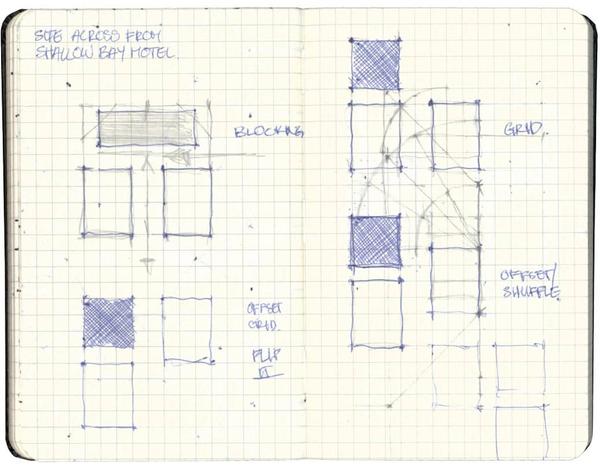 SITE ACROSS FROM
SHALLOW BAY MOTEL.
BLOCKING
OFFSET
GRID.
FLIP
IT
GRID.
OFFSET/
SHUFFLE.